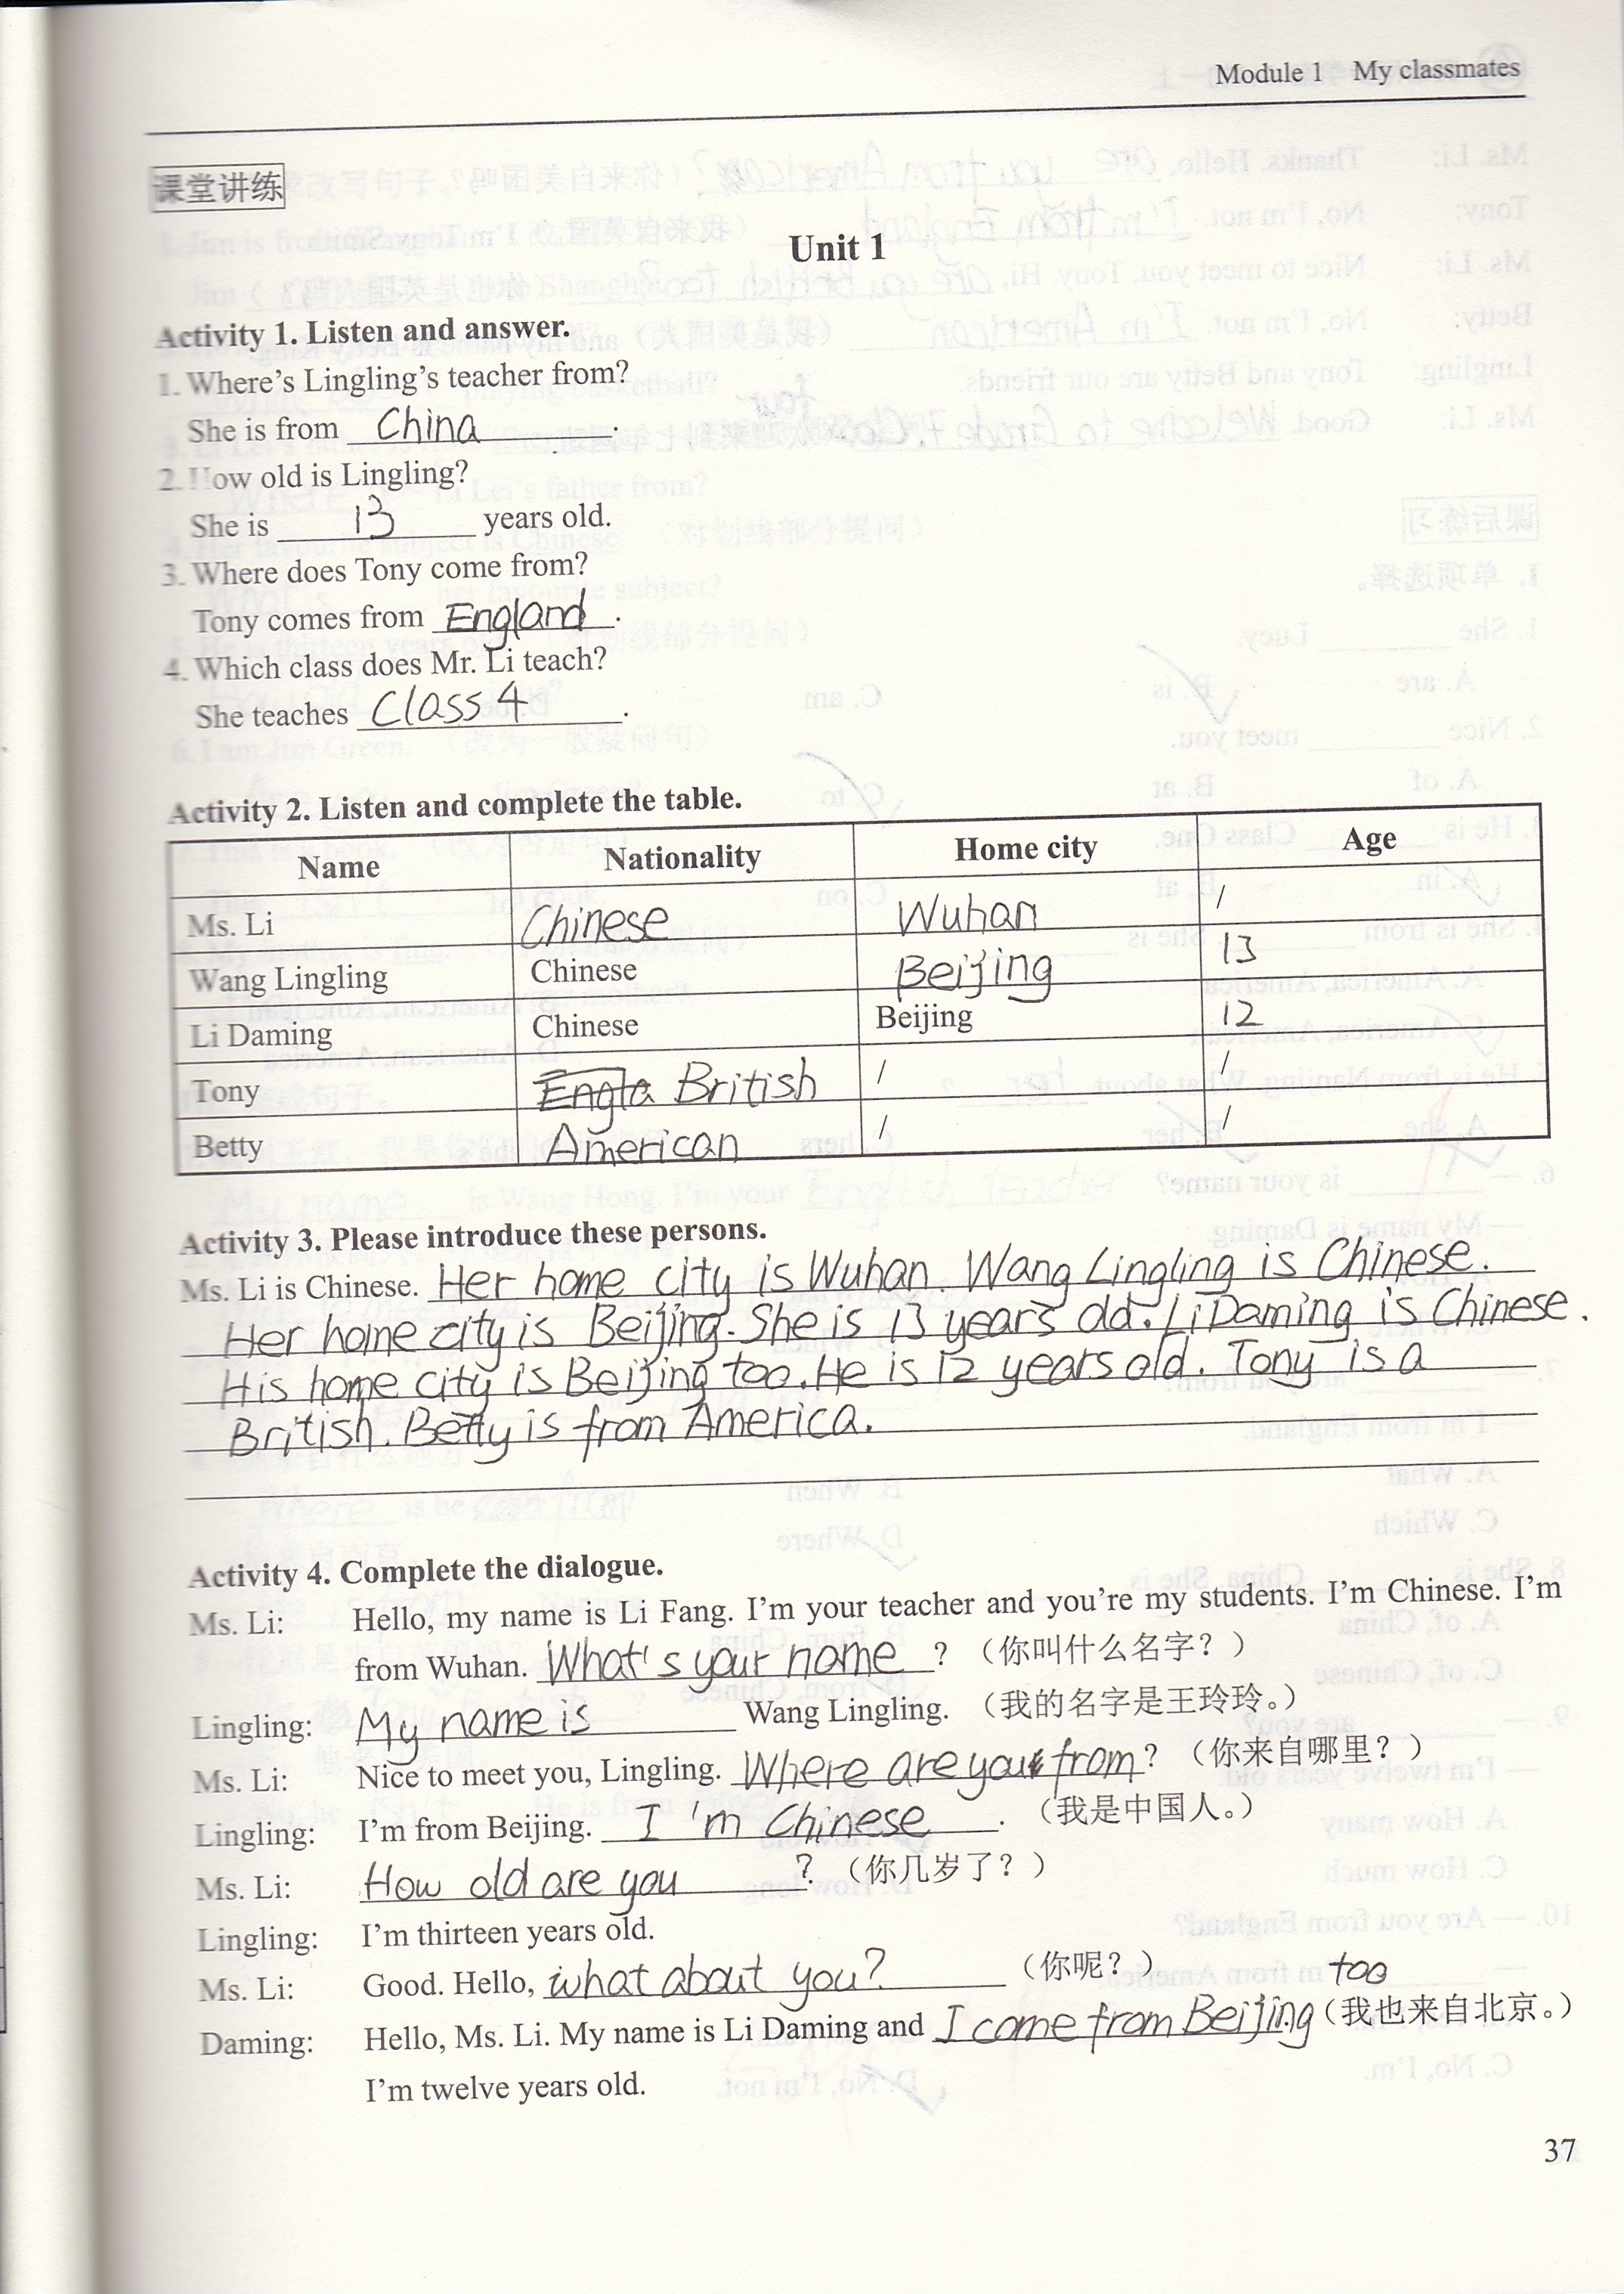 Module 1 My classmates
课堂讲练
Unit 1
Activity 1. Listen and answer.
1. Where's Lingling's teacher from?
She is from China.
2. How old is Lingling?
She is 13 years old.
3. Where does Tony come from?
Tony comes from England.
4. Which class does Mr. Li teach?
She teaches Class 4.
Activity 2. Listen and complete the table.
Name Nationality Home city Age
Ms. Li Chinese Wuhan /
Wang Lingling Chinese Beijing 13
Li Daming Chinese Beijing 12
Tony Engla British / /
Betty American / /
Activity 3. Please introduce these persons.
Ms. Li is Chinese. Her home city is Wuhan. Wang Lingling is Chinese.
Her home city is Beijing. She is 13 years old. Li Daming is Chinese.
His home city is Beijing too. He is 12 years old. Tony is a
British. Betty is from America.
Activity 4. Complete the dialogue.
Ms. Li: Hello, my name is Li Fang. I'm your teacher and you're my students. I'm Chinese. I'm
from Wuhan. What's your name? (你叫什么名字？)
Lingling: My name is Wang Lingling. (我的名字是王玲玲。)
Ms. Li: Nice to meet you, Lingling. Where are you from? (你来自哪里？)
Lingling: I'm from Beijing. I'm Chinese. (我是中国人。)
Ms. Li: How old are you? (你几岁了？)
Lingling: I'm thirteen years old.
Ms. Li: Good. Hello, what about you? (你呢？) too
Daming: Hello, Ms. Li. My name is Li Daming and I come from Beijing (我也来自北京。)
I'm twelve years old.
37